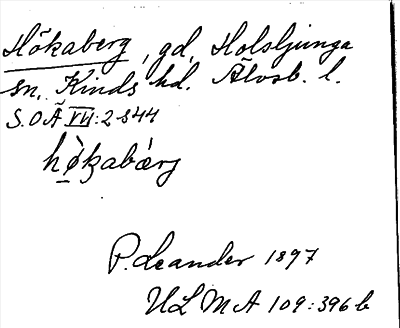 Hökaberg, gd, Holsljunga
sn, Kinds hd. Älvsb. l.
S.O.Ä VII:2 S44
hø̀ꝁabǽrg
P. Leander 1897
ULMA 109:396 b